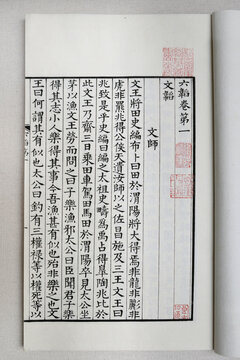 六韜卷第一
文韜
文師
文王將田史編布卜曰田於渭陽將大得焉非龍非彲非
虎非羆兆得公侯天遺汝師以之佐昌施及三王文王曰
兆致是乎史編曰編之太祖史疇為禹占得皐陶兆比於
此文王乃齋三日乘田車駕田馬田於渭陽卒見太公坐
茅以漁文王勞而問之曰子樂漁邪太公曰臣聞君子樂
得其志小人樂得其事今吾漁甚有似也殆非樂之也文
王曰何謂其有似也太公曰釣有三權祿等以權死等以